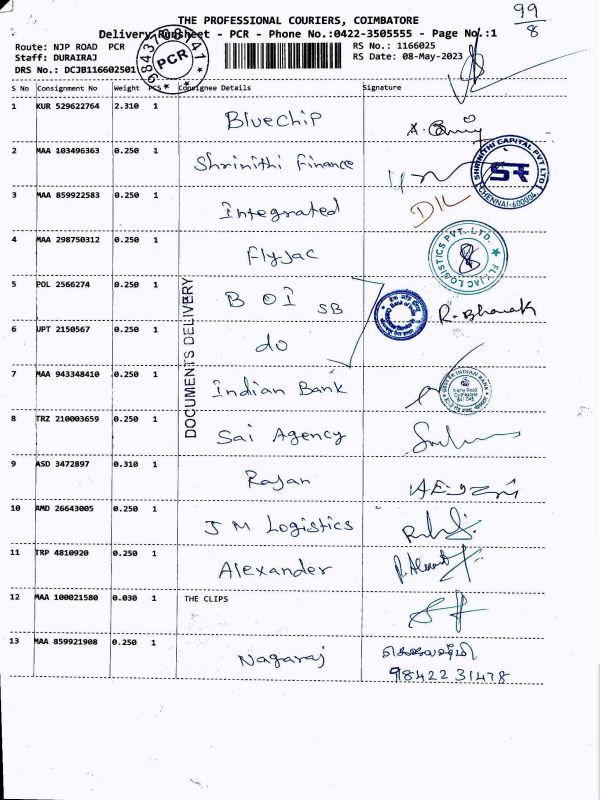 99/8
THE PROFESSIONAL COURIERS, COIMBATORE
Delivery Runsheet - PCR - Phone No.:0422-3505555 - Page No.:1
Route: NJP ROAD PCR
Staff: DURAIRAJ
DRS No.: DCJB116602501
RS No.: 1166025
RS Date: 08-May-2023
PCR
S No Consignment No Weight PCS Consignee Details Signature
1 KUR 529622764 2.310 1 Bluechip
2 MAA 103496363 0.250 1 Shrinithi Finance
SHRINITHI CAPITAL PVT LTD
CHENNAI-600004
3 MAA 859922583 0.250 1 Integrated
4 MAA 298750312 0.250 1 Flyjac
FLYJAC LOGISTICS PVT. LTD.
5 POL 2566274 0.250 1 BOI SB R. Bharath
6 UPT 2150567 0.250 1 do
DOCUMENTS DELIVERY
7 MAA 943348410 0.250 1 Indian Bank
INDIAN BANK
8 TRZ 210003659 0.250 1 Sai Agency
9 ASD 3472897 0.310 1 Rajan
10 AMD 26643005 0.250 1 J M Logistics
11 TRP 4810920 0.250 1 Alexander
12 MAA 100021580 0.030 1 THE CLIPS
13 MAA 859921908 0.250 1 Nagaraj
98422 31478